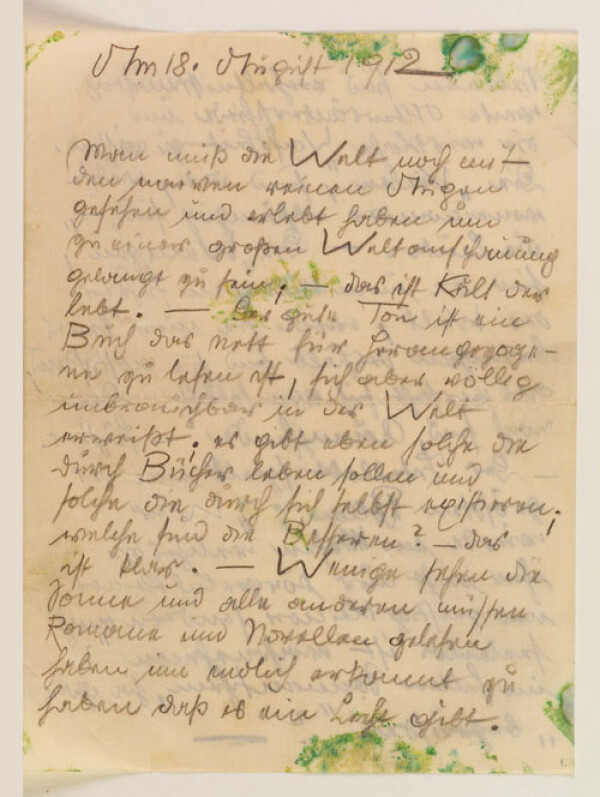 Am 18. August 1912
Man muß die Welt noch mit
den naiven reinen Augen
gesehen und erlebt haben um
zu einer großen Weltanschauung
gelangt zu sein; – das ist Kult der
lebt. – Der gute Ton ist ein
Buch das nett für Herangezoge-
ne zu lesen ist, sich aber völlig
unbrauchbar in der Welt
erweißt; es gibt eben solche die
durch Bücher leben sollen und
solche die durch sich selbst existieren;
welche sind die Besseren? – das
ist klar. – Wenige sehen die
Sonne und alle anderen müssen
Romane und Novellen gelesen
haben um endlich erkannt zu
haben daß es ein Licht gibt.
1.